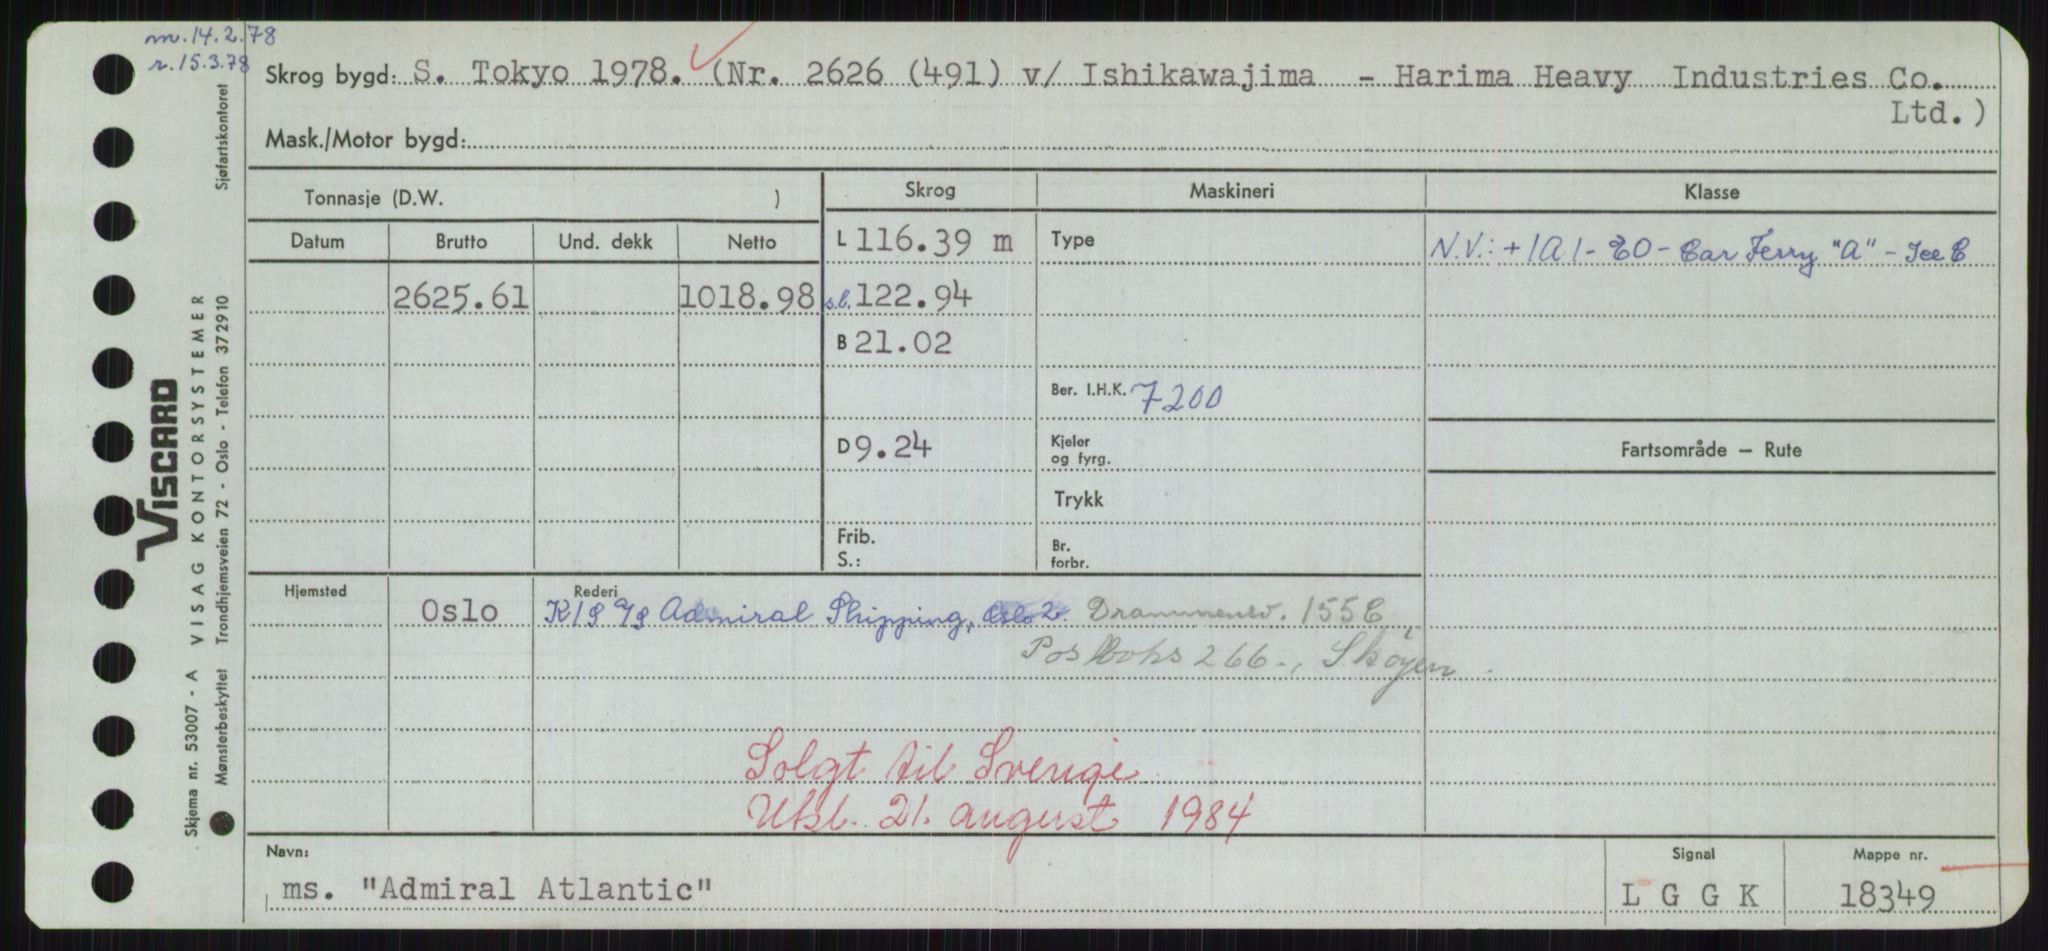 m. 14.2.78
r. 15.3.78
Skrog bygd: S. Tokyo 1978. (Nr. 2626 (491) v/ Ishikawajima - Harima Heavy Industries Co.
Ltd.)
Mask./Motor bygd:
Tonnasje (D.W. )
Skrog
Maskineri
Klasse
Datum Brutto Und. dekk Netto
L 116.39 m
Type
N.V.: +1A1-EO-Car Ferry "A" - Ice C
2625.61 1018.98 s.l. 122.94
B 21.02
Ber. I.H.K. 7200
D 9.24
Kjeler
og fyrg.
Fartsområde — Rute
Trykk
Frib.
S.:
Br.
forbr.
Hjemsted
Rederi
Oslo K/S A/S Admiral Shipping, Oslo 2. Drammensv. 155 C,
Postboks 266., Skøyen.
Solgt til Sverige
Utkl. 21. august 1984
Navn:
ms. "Admiral Atlantic"
Signal
L G G K
Mappe nr.
18349
Sjøfartskontoret
VISCARD
VISAG KONTORSYSTEMER
Trondhjemsveien 72 - Oslo - Telefon 372910
Skjema nr. 53007 - A
Mønsterbeskyttet